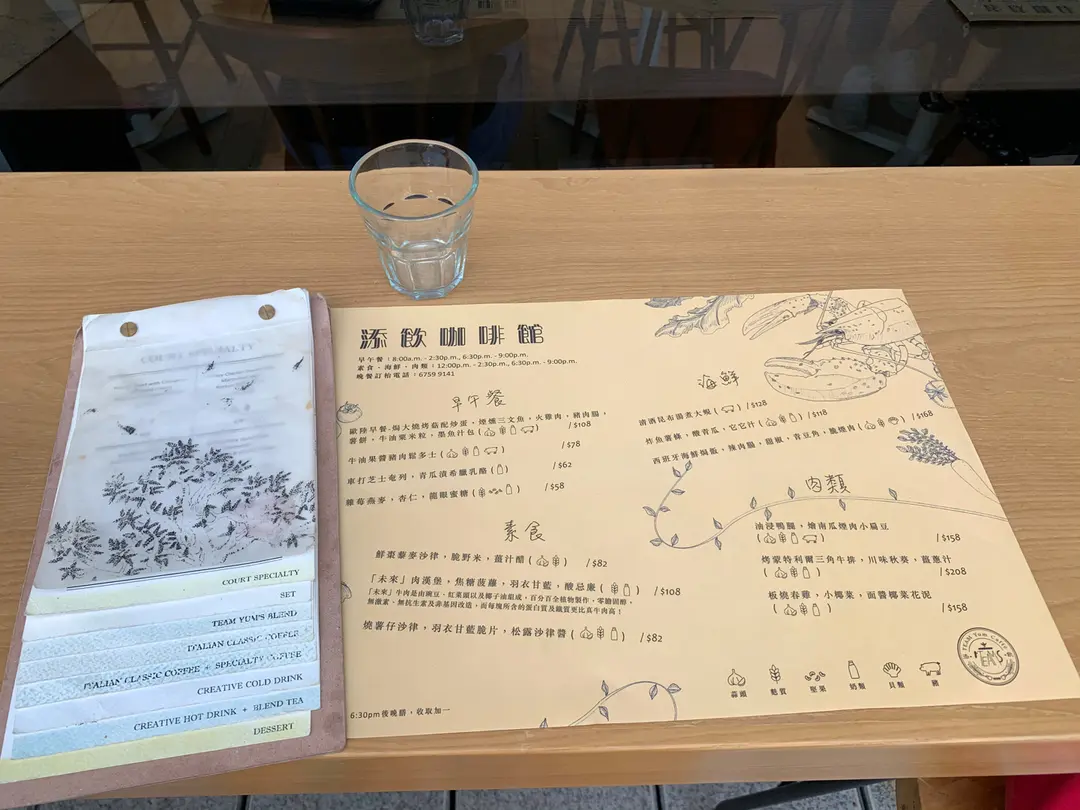 COURT SPECIALTY
SET
TEAM YUM'S BLEND
ITALIAN CLASSIC COFFEE
ITALIAN CLASSIC COFFEE + SPECIALTY COFFEE
CREATIVE COLD DRINK
CREATIVE HOT DRINK + BLEND TEA
DESSERT
添飲咖啡館
早午餐：8:00a.m. - 2:30p.m., 6:30p.m. - 9:00p.m.
素食、海鮮、肉類：12:00p.m. - 2:30p.m., 6:30p.m. - 9:00p.m.
晚餐訂枱電話：6759 9141
早午餐
歐陸早餐-焗大燒烤菇配炒蛋，煙燻三文魚，火雞肉，豬肉腸，
薯餅，牛油粟米粒，墨魚汁包 ( ) /$108
牛油果醬豬肉鬆多士 ( ) /$78
車打芝士奄列，青瓜漬希臘乳酪 ( ) /$62
雜莓燕麥，杏仁，龍眼蜜糖 ( ) /$58
素食
鮮棗藜麥沙律，脆野米，薑汁醋 ( ) /$82
「未來」肉漢堡，焦糖菠蘿，羽衣甘藍，酸忌廉 ( ) /$108
「未來」牛肉是由豌豆、紅菜頭以及椰子油組成，百分百全植物製作，零膽固醇，
無激素、無抗生素及非基因改造，而每塊所含的蛋白質及鐵質更比真牛肉高！
燒薯仔沙律，羽衣甘藍脆片，松露沙律醬 ( ) /$82
6:30pm後晚膳，收取加一
海鮮
清酒昆布湯煮大蜆 ( ) /$128
炸魚薯條，酸青瓜，它它汁 ( ) /$118
西班牙海鮮焗飯，辣肉腸，甜椒，青豆角，脆煙肉 ( ) /$168
肉類
油浸鴨腿，燴南瓜煙肉小扁豆
( ) /$158
烤蒙特利爾三角牛排，川味秋葵，蘊蔥汁
( ) /$208
板燒春雞，小椰菜，面醬椰菜花泥
( ) /$158
蒜頭 麩質 堅果 奶類 貝類 豬
TEAM Yum Caffe